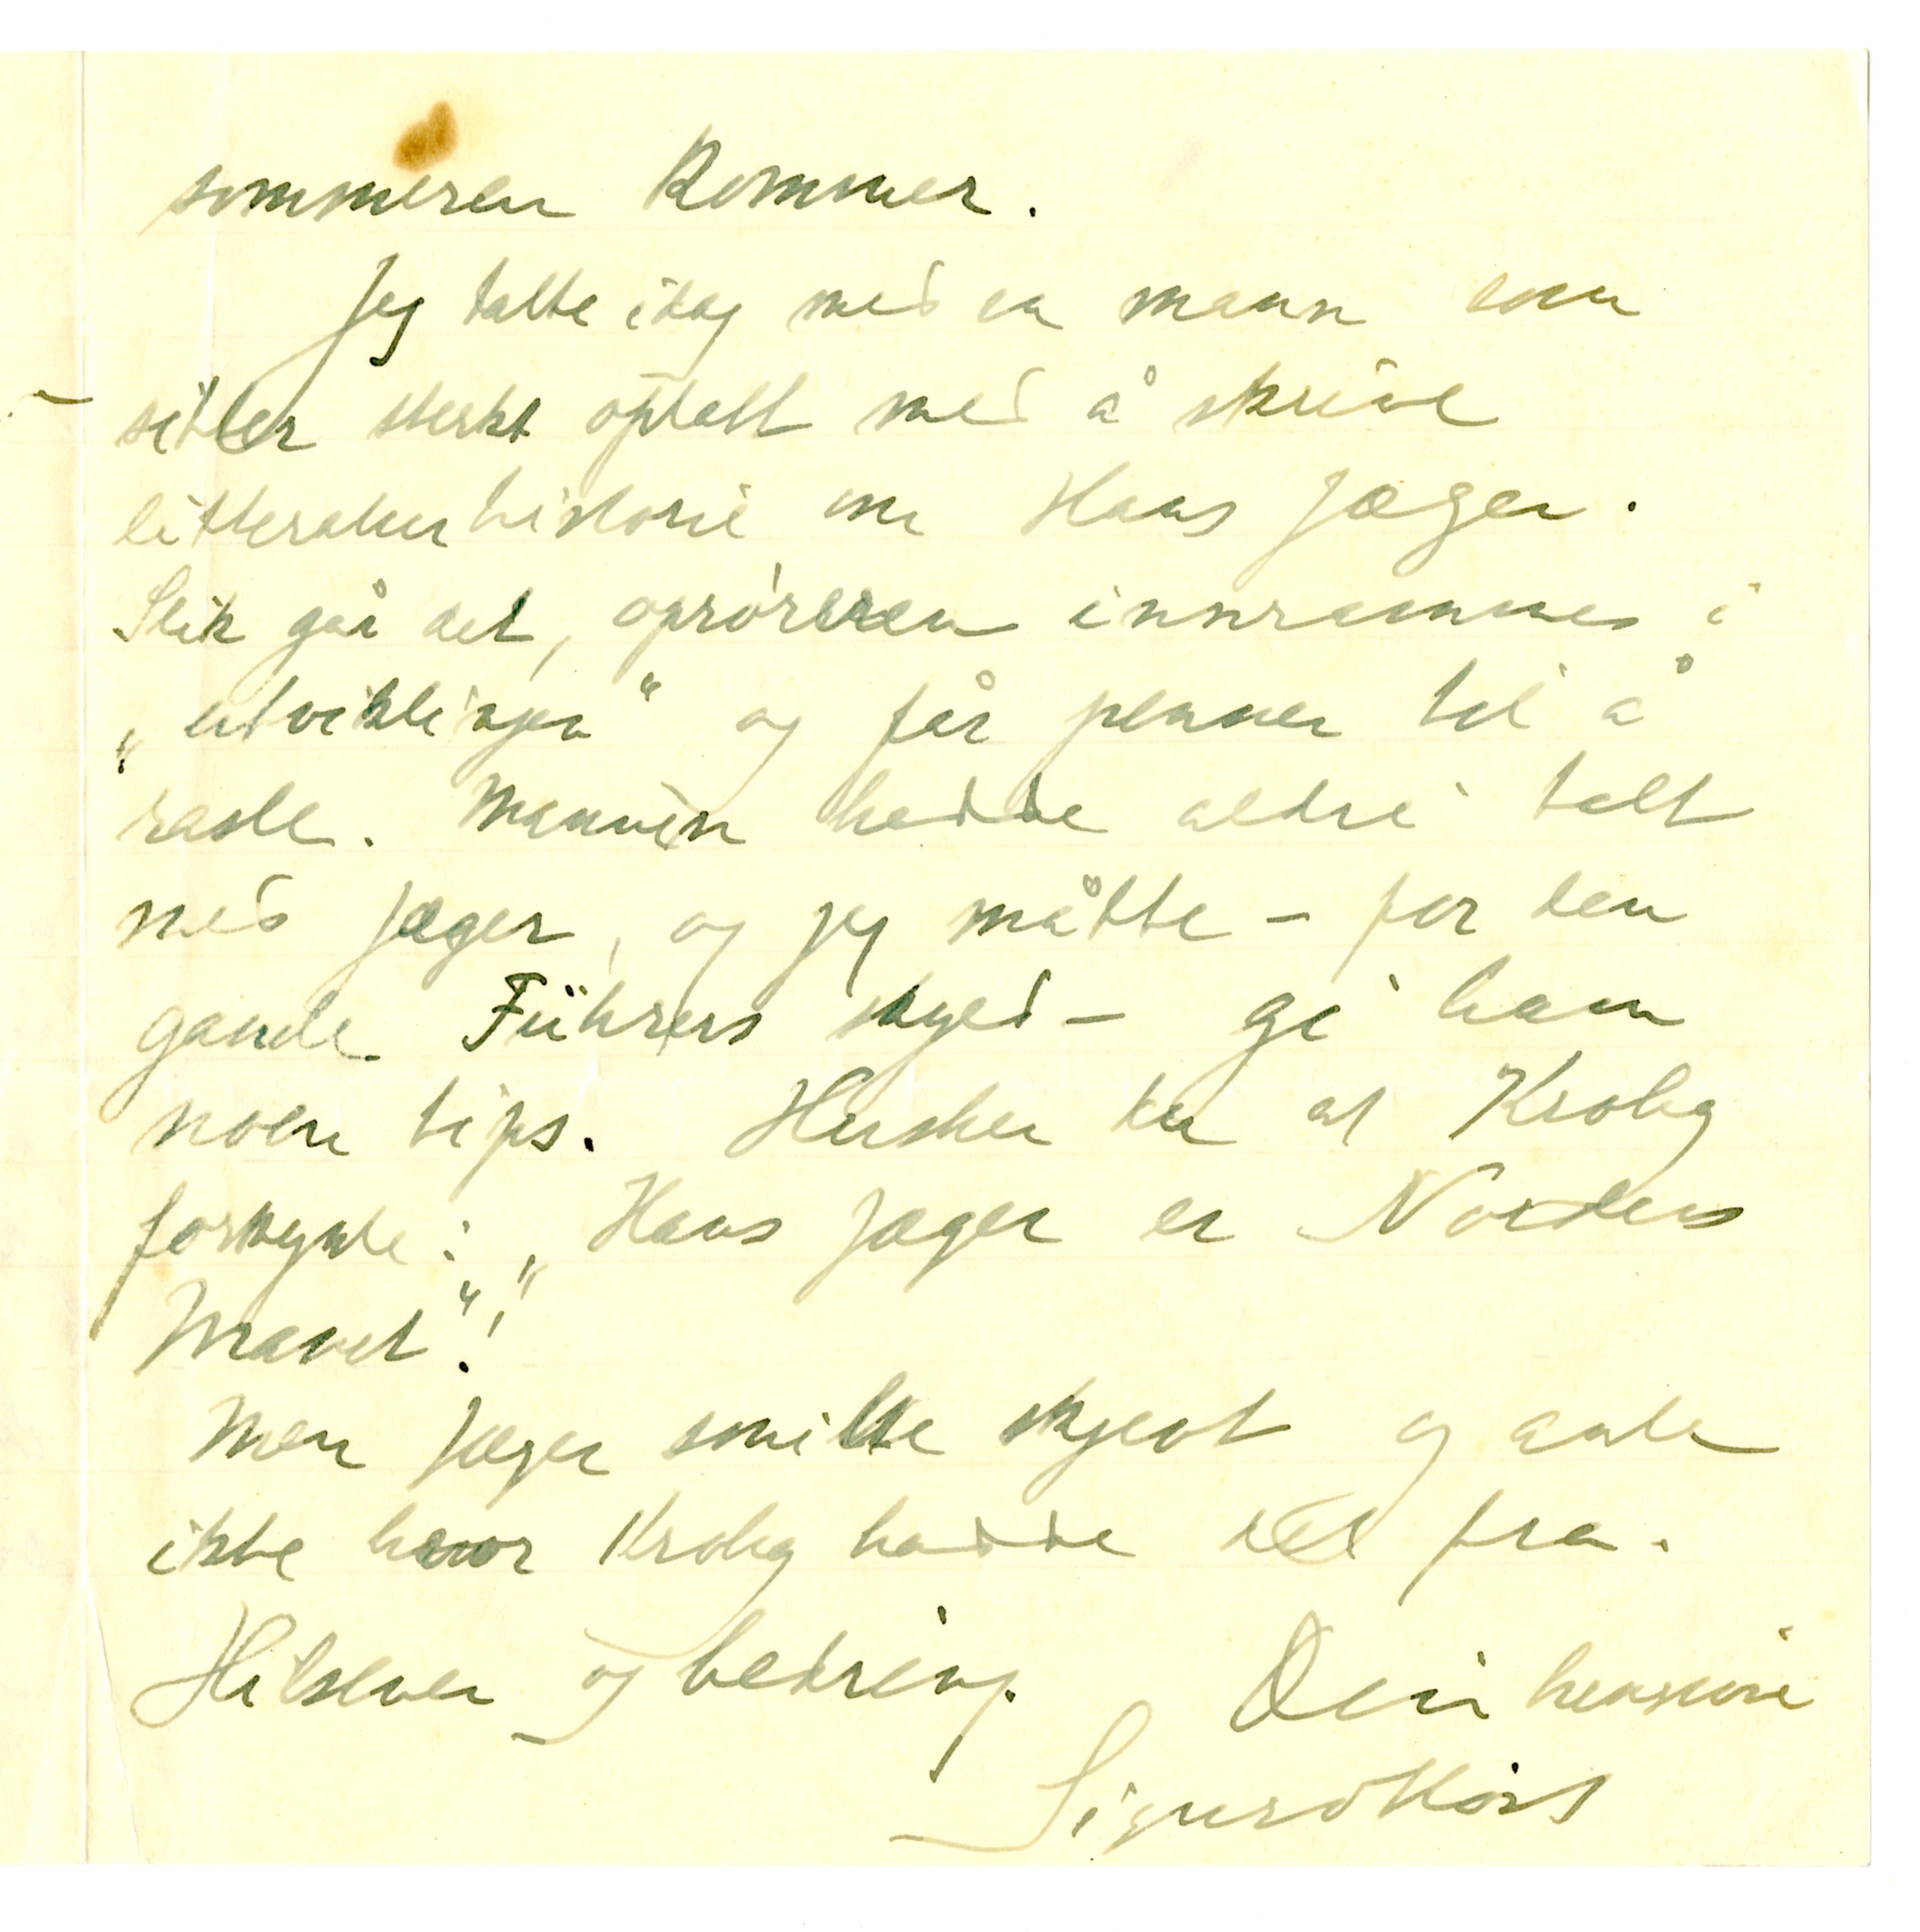 sommeren kommer.
Jeg talte idag med en mann som
sitter sterkt optatt med å skrive
litteraturhistorie om Hans Jæger.
Slik går det, oprøreren innrammes i
„utviklingen“ og får penner til å
rasle. Mannen hadde aldri talt
med Jæger, og jeg måtte – for den
gamle Führers skyld – gi ham
noen tips. Husker du at Krohg
forkynte: „Hans Jæger er Nordens
Marat“!
Men Jæger smilte skjevt og ante
ikke hvor Krohg hadde det fra.
Hilsener og bedring. Din hengivne
Sigurd Høst